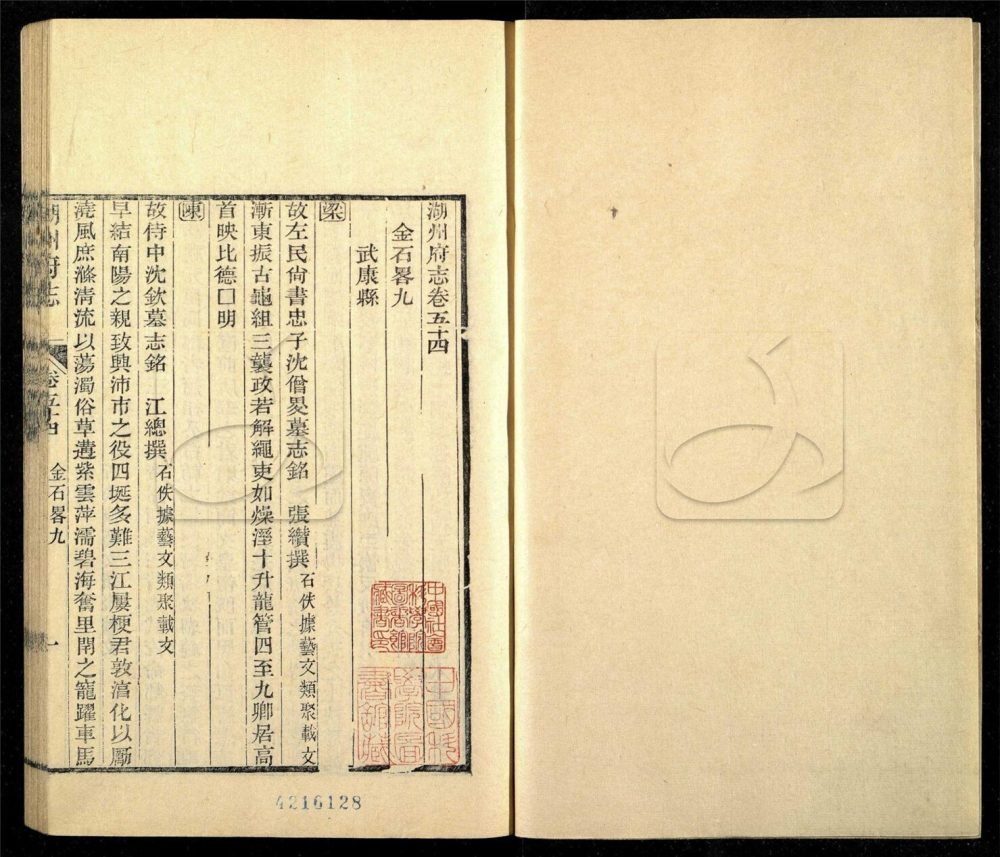 湖州府志卷五十四
金石畧九
武康縣
梁
故左民尚書忠子沈僧旻墓志銘 張纘撰 石佚據藝文類聚載文
漸東振古龜組三襲政若解繩吏如燥溼十升龍管四至九卿居高
首映比德囗明
陳
故侍中沈欽墓志銘 江總撰 石佚據藝文類聚載文
早結南陽之親致興沛市之役四埏多難三江屢梗君敦淯化以厲
澆風庶滌清流以蕩濁俗草遘紫雲萍濡碧海奮里閈之寵躍車馬
湖州府志 卷五十四 金石畧九 一
中國社會科學院圖書館藏書印
中國科學院圖書館藏
4216128